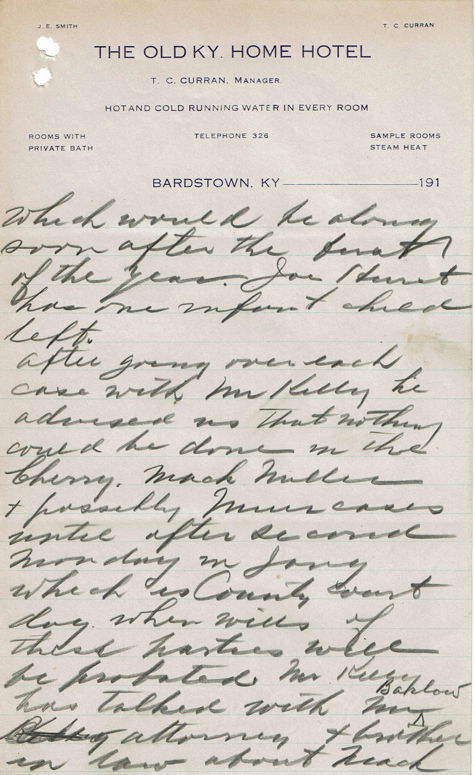 J. E. SMITH T. C. CURRAN
THE OLD KY. HOME HOTEL
T. C. CURRAN, MANAGER
HOT AND COLD RUNNING WATER IN EVERY ROOM
ROOMS WITH TELEPHONE 326 SAMPLE ROOMS
PRIVATE BATH STEAM HEAT
BARDSTOWN, KY 191
which would be along
soon after the first
of the year. Joe Hurst
has one infant child
left.
after going over each
case with Mr Kelly he
advised us that nothing
could be done in the
Cherry, Mack Miller
+ possibly Muir cases
until after second
monday in Jany
which is County court
day. when wills of
these parties will
be probated. Mr Kelly
has talked with Mr Barlow
attorney + brother
in law about Mack